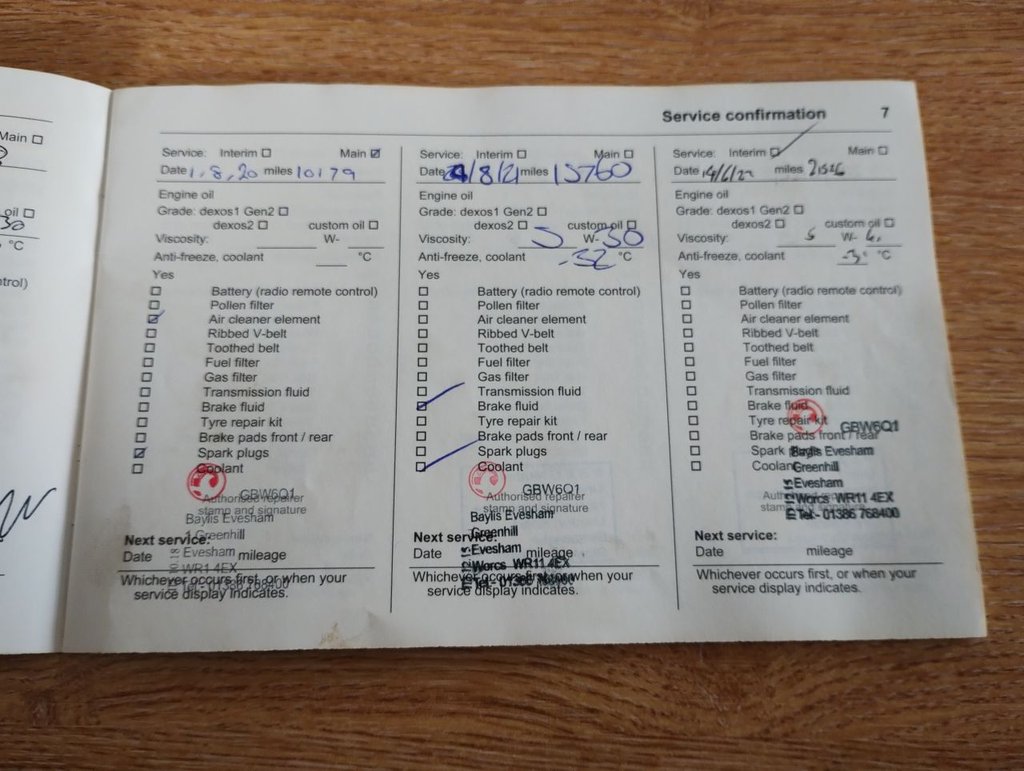 Main ☐
oil ☐
30
°C
trol)
Service confirmation 7
Service: Interim ☐ Main ☑
Date 1.8.20 miles 10179
Engine oil
Grade: dexos1 Gen2 ☐
dexos2 ☐ custom oil ☐
Viscosity: W-
Anti-freeze, coolant °C
Yes
☐ Battery (radio remote control)
☐ Pollen filter
☑ Air cleaner element
☐ Ribbed V-belt
☐ Toothed belt
☐ Fuel filter
☐ Gas filter
☐ Transmission fluid
☐ Brake fluid
☐ Tyre repair kit
☐ Brake pads front / rear
☑ Spark plugs
☐ Coolant
GBW6Q1
Authorised repairer
stamp and signature
Baylis Evesham
1 Greenhill
Next service:
Evesham
Date mileage
WR11 4EX
Whichever occurs first, or when your
Tel:- 01386 768400
service display indicates.
Service: Interim ☐ Main ☐
Date /8/21 miles 15760
Engine oil
Grade: dexos1 Gen2 ☐
dexos2 ☐ custom oil ☐
Viscosity: 5 W- 30
Anti-freeze, coolant -32 °C
Yes
☐ Battery (radio remote control)
☐ Pollen filter
☐ Air cleaner element
☐ Ribbed V-belt
☐ Toothed belt
☐ Fuel filter
☐ Gas filter
☐ Transmission fluid
☑ Brake fluid
☐ Tyre repair kit
☐ Brake pads front / rear
☐ Spark plugs
☑ Coolant
GBW6Q1
Authorised repairer
stamp and signature
Baylis Evesham
Greenhill
Next service:
Evesham
Date mileage
Worcs WR11 4EX
Whichever occurs first, or when your
Tel:- 01386
service display indicates.
Service: Interim ☑ Main ☐
Date 14/6/22 miles
Engine oil
Grade: dexos1 Gen2 ☐
dexos2 ☐ custom oil ☐
Viscosity: 5 W-
Anti-freeze, coolant °C
Yes
☐ Battery (radio remote control)
☐ Pollen filter
☐ Air cleaner element
☐ Ribbed V-belt
☐ Toothed belt
☐ Fuel filter
☐ Gas filter
☐ Transmission fluid
☐ Brake fluid
☐ Tyre repair kit
GBW6Q1
☐ Brake pads front / rear
☐ Spark
Baylis Evesham
☐ Coolant
Greenhill
Evesham
Worcs WR11 4EX
Tel:- 01386 768400
Next service:
Date mileage
Whichever occurs first, or when your
service display indicates.